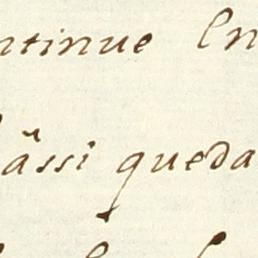 ntinue En
âssi queda